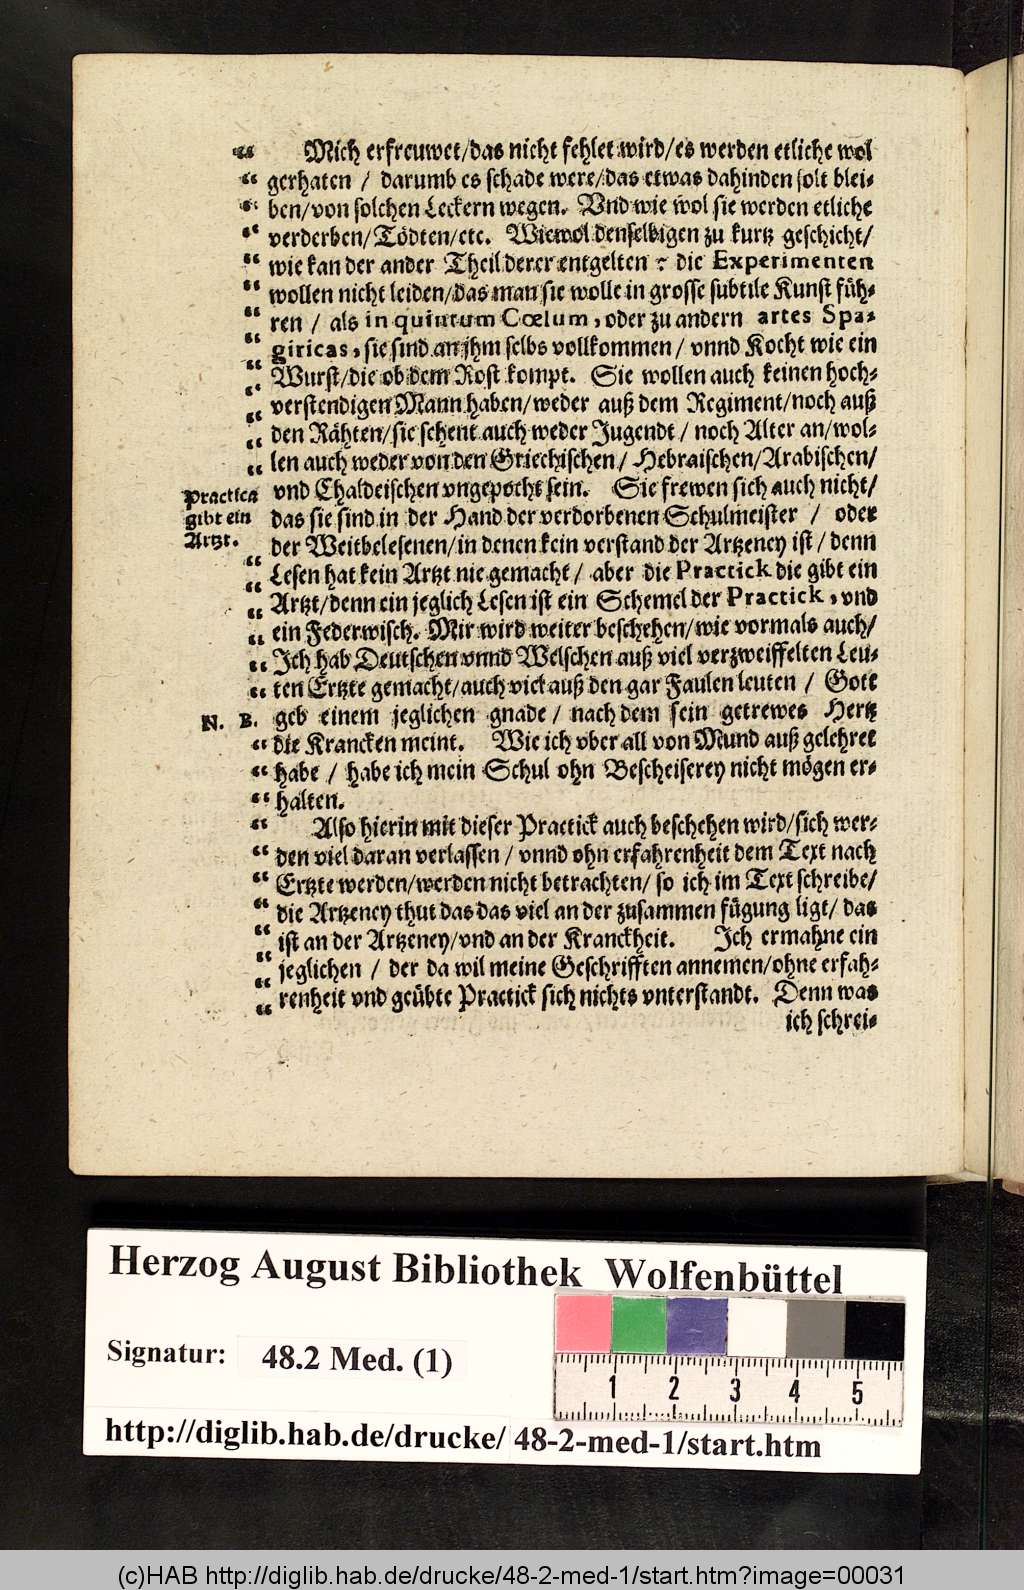 „ Mich erfreuwet/das nicht fehlet wird/es werden etliche wol
„ gerhaten / darumb es schade were/das etwas dahinden solt blei-
„ ben/von solchen Leckern wegen. Vnd wie wol sie werden etliche
„ verderben/Tödten/etc. Wiewol denselbigen zu kurtz geschicht/
„ wie kan der ander Theil derer entgelten ? die Experimenten
„ wollen nicht leiden/das man sie wolle in grosse subtile Kunst füh-
„ ren / als in quintum Cœlum, oder zu andern artes Spa-
„ giricas, sie sind an jhm selbs vollkommen / vnnd Kocht wie ein
„ Wurst/die ob dem Rost kompt. Sie wollen auch keinen hoch-
„ verstendigen Mann haben/weder auß dem Regiment/noch auß
„ den Rähten/sie schent auch weder Jugendt / noch Alter an/wol-
„ len auch weder von den Griechischen/ Hebraischen/Arabischen/
Practica
gibt ein
Artzt.
vnd Chaldeischen vngepocht sein. Sie frewen sich auch nicht/
das sie sind in der Hand der verdorbenen Schulmeister / oder
der Weitbelesenen/in denen kein verstand der Artzeney ist/denn
„ Lesen hat kein Artzt nie gemacht/ aber die Practick die gibt ein
„ Artzt/denn ein jeglich Lesen ist ein Schemel der Practick, vnd
„ ein Federwisch. Mir wird weiter beschehen/wie vormals auch/
„ Ich hab Deutschen vnnd Welschen auß viel verzweiffelten Leu-
„ ten Ertzte gemacht/auch viel auß den gar Faulen leuten / Gott
N. B. geb einem jeglichen gnade / nach dem sein getrewes Hertz
„ die Krancken meint. Wie ich vber all von Mund auß gelehret
„ habe / habe ich mein Schul ohn Bescheiserey nicht mögen er-
„ halten.
„ Also hierin mit dieser Practick auch beschehen wird/sich wer-
„ den viel daran verlassen / vnnd ohn erfahrenheit dem Text nach
„ Ertzte werden/werden nicht betrachten/ so ich im Text schreibe/
„ die Artzency thut das das viel an der zusammen fügung ligt/ das
„ ist an der Artzeney/vnd an der Kranckheit. Ich ermahne ein
„ jeglichen / der da wil meine Geschrifften annemen/ohne erfah-
„ renheit vnd geübte Practick sich nichts vnterstandt. Denn was
ich schrei-
Herzog August Bibliothek Wolfenbüttel
Signatur: 48.2 Med. (1)
1 2 3 4 5
http://diglib.hab.de/drucke/ 48-2-med-1/start.htm
(c)HAB http://diglib.hab.de/drucke/48-2-med-1/start.htm?image=00031